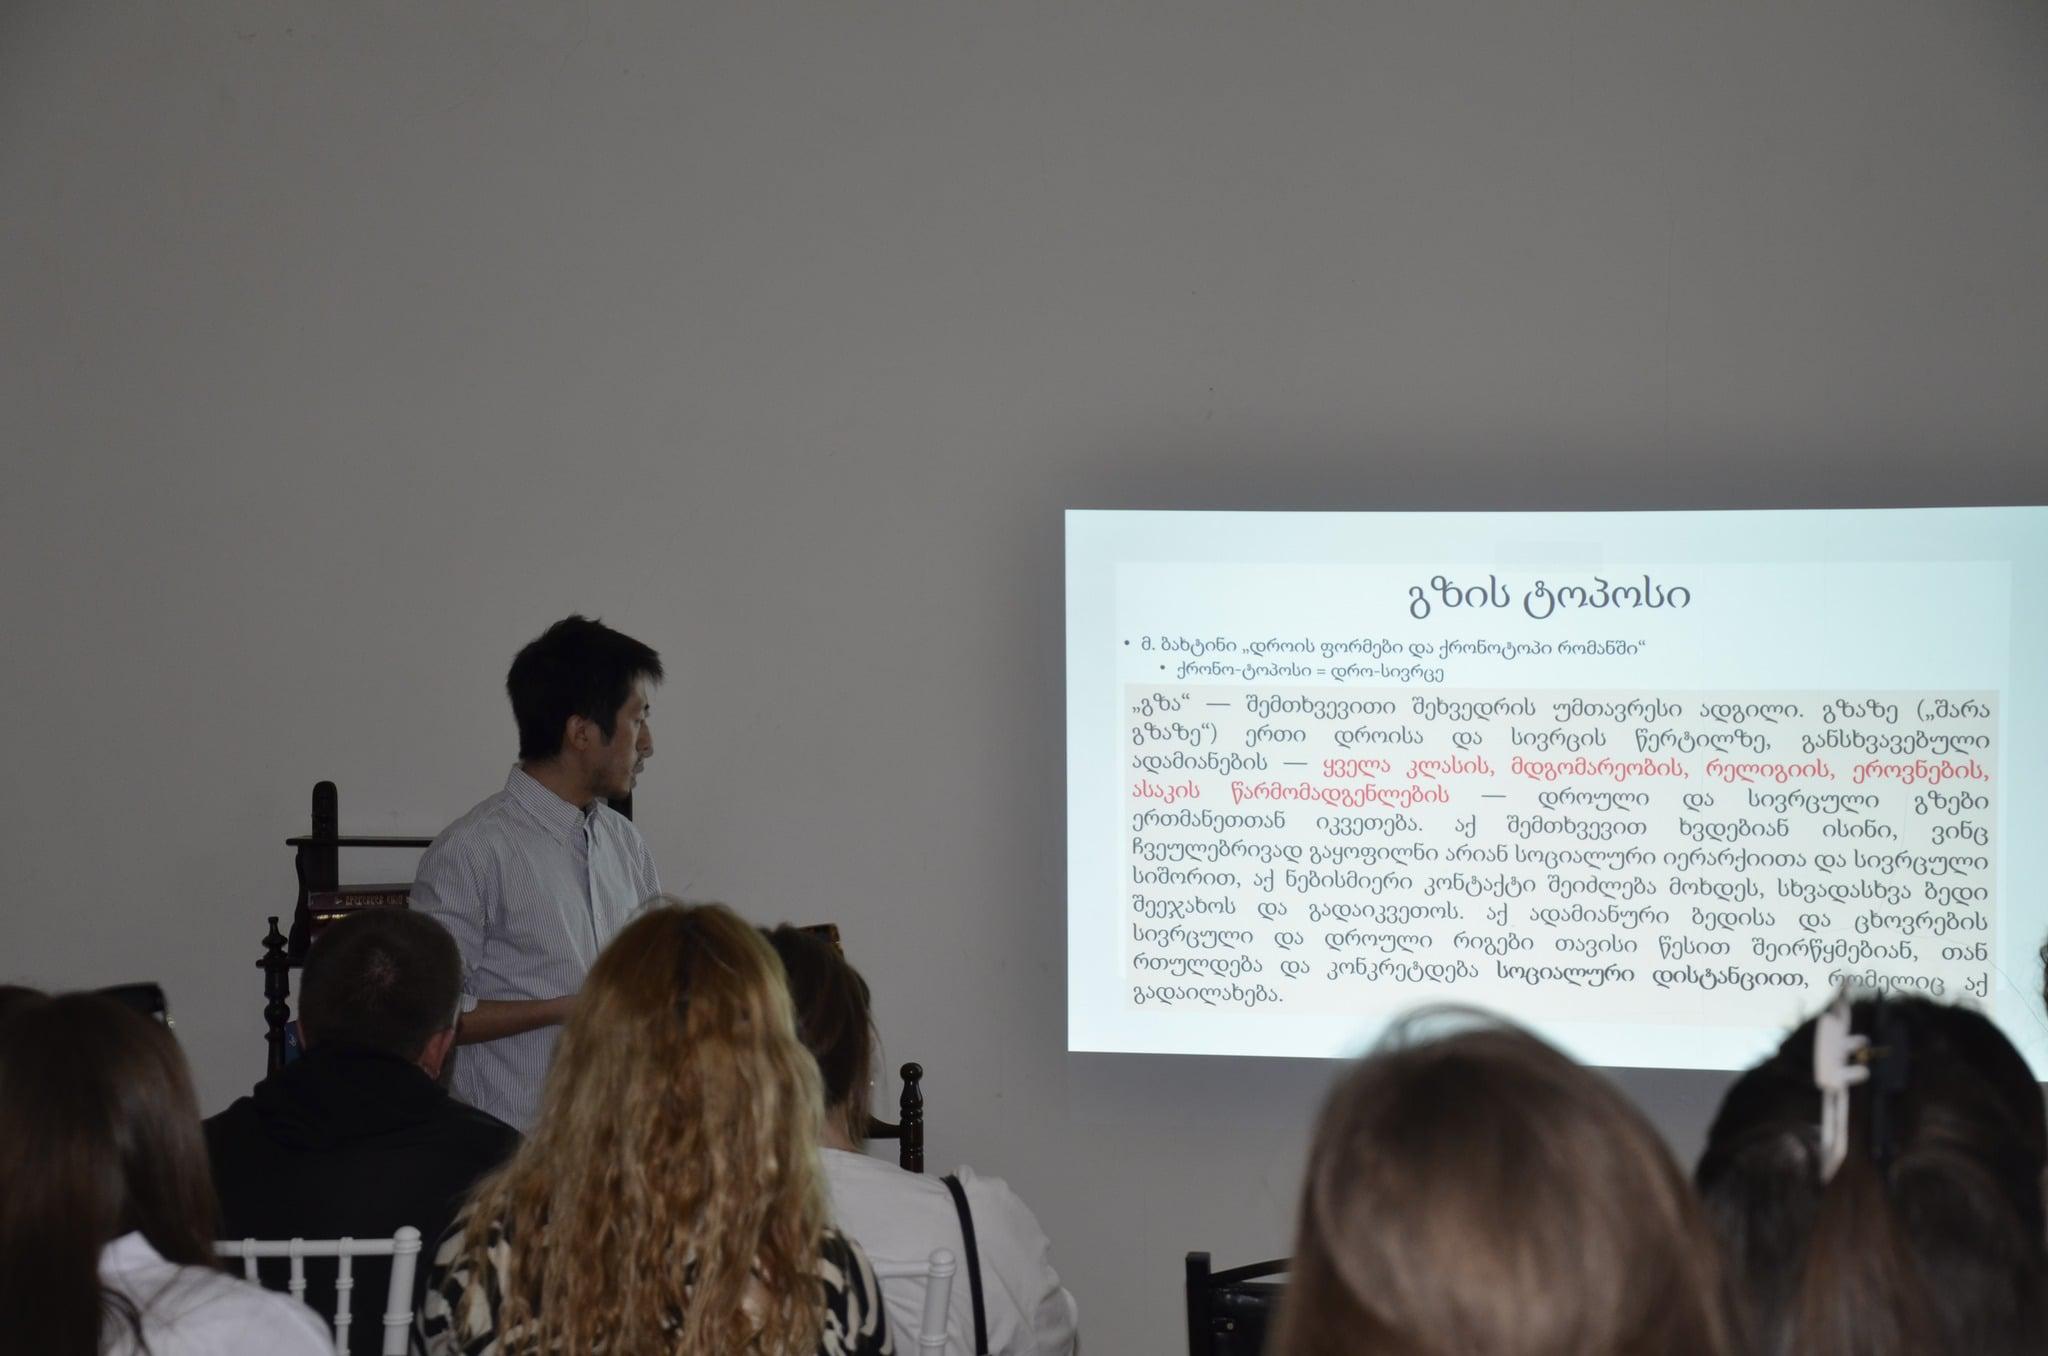 გზის ტოპოსი
• მ. ბახტინი „დროის ფორმები და ქრონოტოპი რომანში“
• ქრონო-ტოპოსი = დრო-სივრცე
„გზა“ — შემთხვევითი შეხვედრის უმთავრესი ადგილი. გზაზე („შარა
გზაზე“) ერთი დროისა და სივრცის წერტილზე, განსხვავებული
ადამიანების — ყველა კლასის, მდგომარეობის, რელიგიის, ეროვნების,
ასაკის წარმომადგენლების — დროული და სივრცული გზები
ერთმანეთთან იკვეთება. აქ შემთხვევით ხვდებიან ისინი, ვინც
ჩვეულებრივად გაყოფილნი არიან სოციალური იერარქიითა და სივრცული
სიშორით, აქ ნებისმიერი კონტაქტი შეიძლება მოხდეს, სხვადასხვა ბედი
შეეჯახოს და გადაიკვეთოს. აქ ადამიანური ბედისა და ცხოვრების
სივრცული და დროული რიგები თავისი წესით შეირწყმებიან, თან
რთულდება და კონკრეტდება სოციალური დისტანციით, რომელიც აქ
გადაილახება.